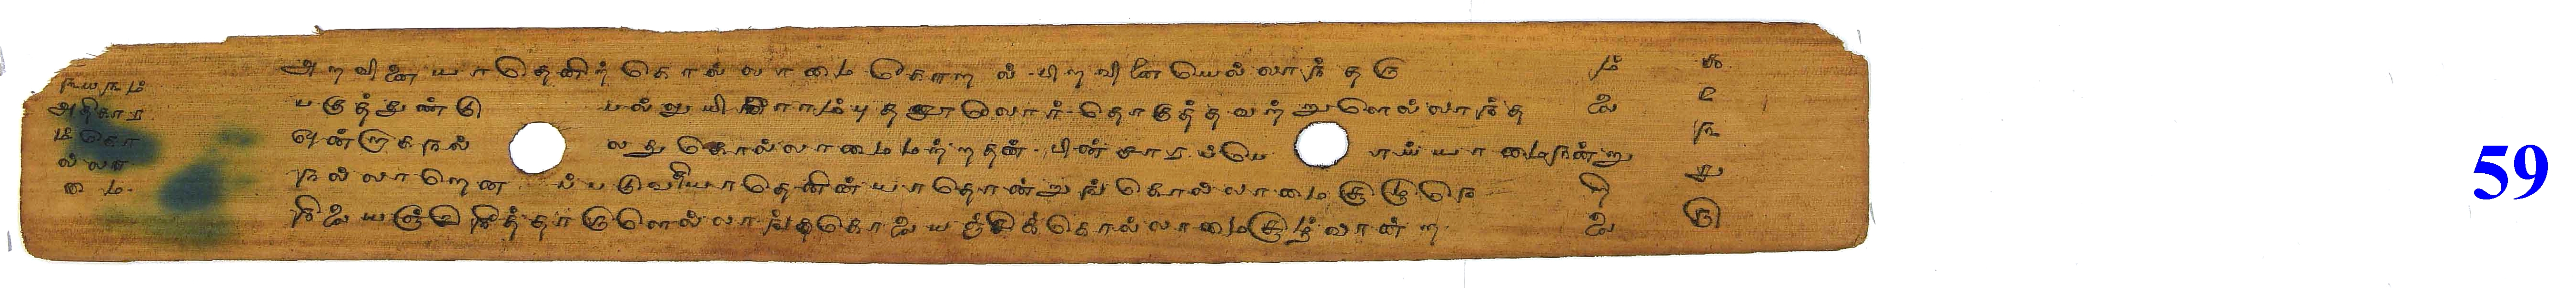 ௩௰௩ம்
அதிகார
ம் கொ
ல்லா
மை
அறவினை யாதெனிற் கொல்லாமை கோறல் பிறவினை யெல்லாந் தரு ம் ௧
பகுத்துண்டு பல்லுயி ரோம்புத னூலோர் தொகுத்தவற்றுளெல்லாந்த லை ௨
ஒன்றாகநல் லது கொல்லாமைமற்றதன் பின்சாரப்பொ ய்யாமைநன்று ௩
நல்லாறென ப்படுவதியாதெனின் யாதொன்றுங் கொல்லாமை சூழுநெ றி ௪
நிலையஞ்சி நீத்தாருளெல்லாங் கொலையஞ்சிக் கொல்லாமைசூழ்வான் ற லை ௫
59